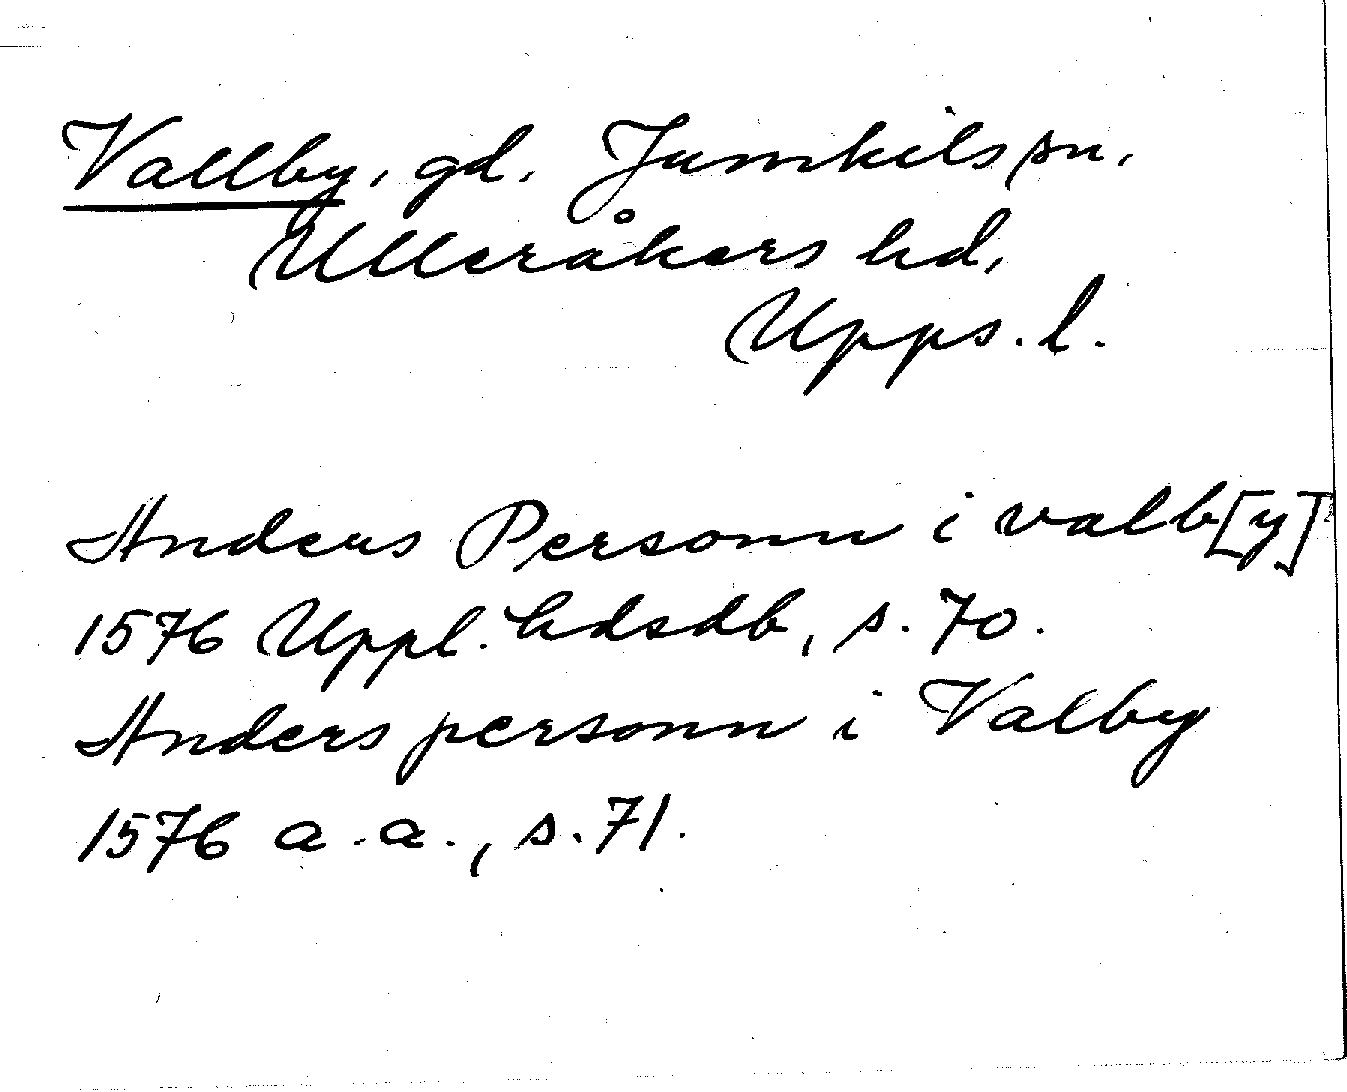 Vallby, gd. Jumkils sn.
Ulleråkers hd,
Upps. l.
Anders Personn i valb[y]
1576 Uppl. hdsdb, s. 70.
Anders personn i Valby
1576 a.a., s. 71.